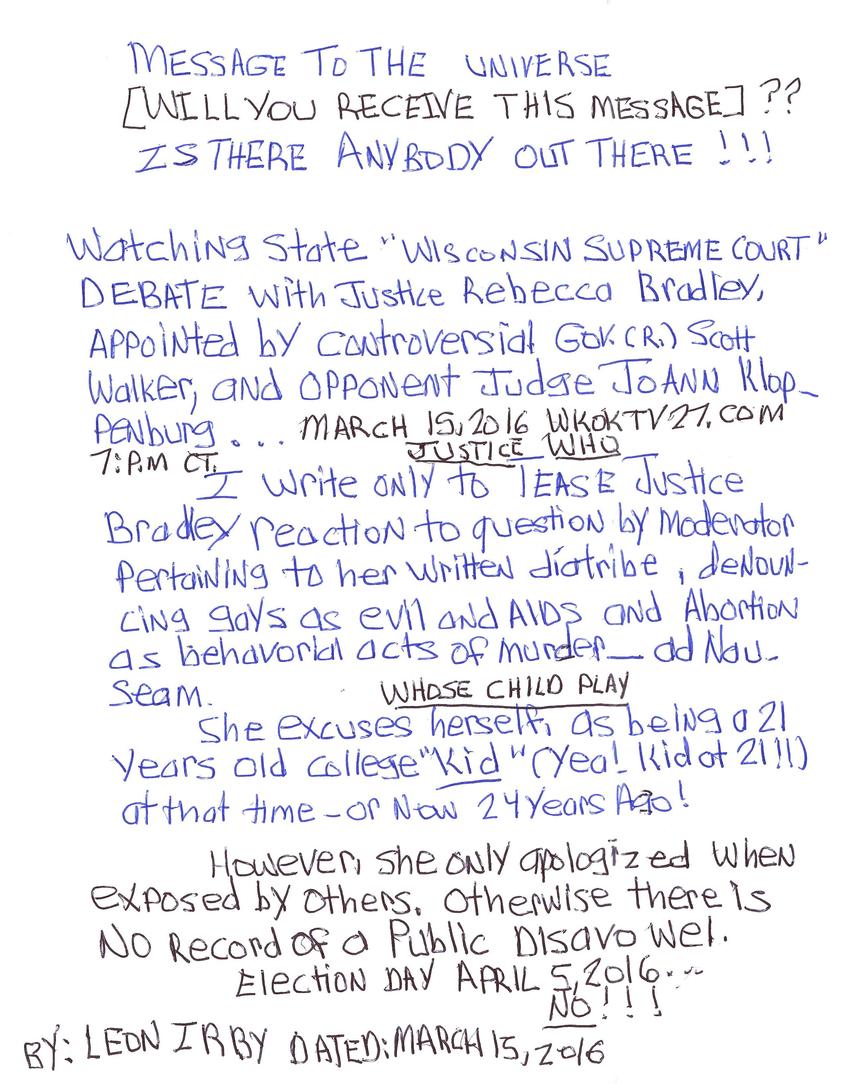 MESSAGE TO THE UNIVERSE
[WILL YOU RECEIVE THIS MESSAGE] ??
IS THERE ANYBODY OUT THERE !!!
Watching State "WISCONSIN SUPREME COURT"
DEBATE with Justice Rebecca Bradley,
APPOINTED by controversial GOV. (R.) Scott
Walker, and OPPONENT Judge JOANN Klop-
penburg . . . MARCH 15, 2016 WKOKTV27.COM
7:P.M CT.
JUSTICE WHO
I write only to TEASE Justice
Bradley reaction to question by Moderator
Pertaining to her written diatribe, denoun-
cing gays as evil and AIDS and Abortion
as behavorial acts of murder_ ad Nau-
seam.
WHOSE CHILD PLAY
She excuses herself, as being a 21
years old college "Kid" (Yea! Kid at 21!!)
at that time - or Now 24 Years Ago!
However, she only apologized when
exposed by others. Otherwise there is
No Record of a Public Disavowel.
Election DAY APRIL 5, 2016...
NO!!!
BY: LEON IRBY DATED: MARCH 15, 2016